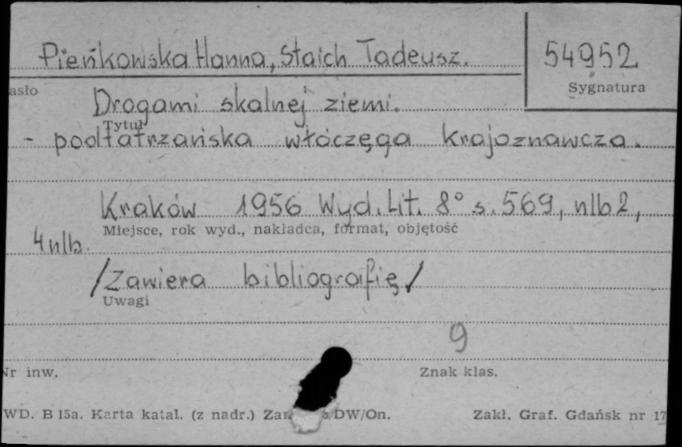 Pieńkowska Hanna, Staich Tadeusz.
54952
asło
Sygnatura
Drogami skalnej ziemi.
Tytuł
- podtatrzańska włóczęga krajoznawcza.
Kraków 1956 Wyd. Lit. 8° s. 569, nlb 2,
Miejsce, rok wyd., nakładca, format, objętość
4 nlb.
/Zawiera bibliografię/
Uwagi
9
Nr inw.
Znak klas.
WD. B 15a. Karta katal. (z nadr.) DW/On.
Zakł. Graf. Gdańsk nr 17